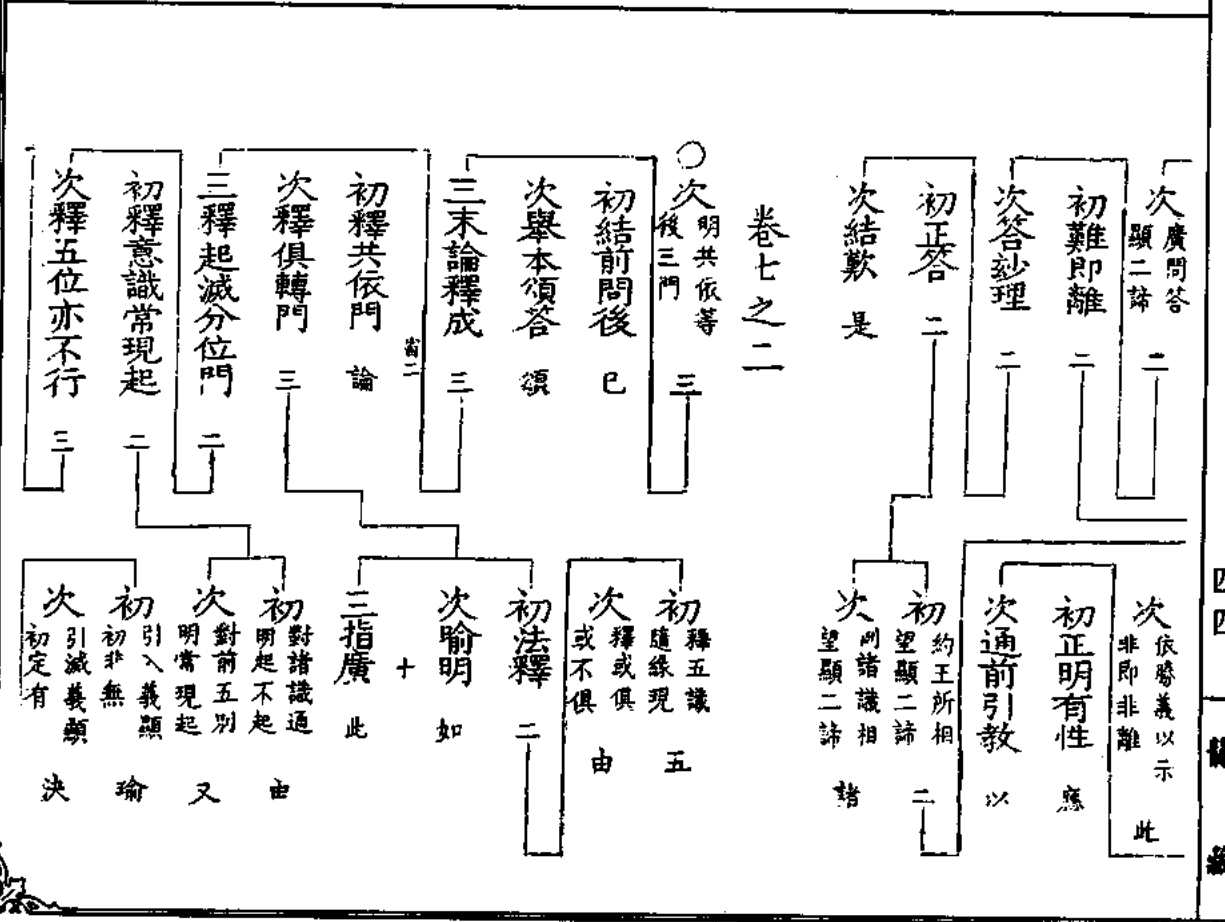 次廣問答顯二諦 二
初難即離 二
次答玅理 二
初正答 二
次結歎 是
卷七之二
○次明共依等後三門 三
初結前問後 已
次舉本頌答 頌
三末論釋成 三
初釋共依門 論
次釋俱轉門 三
三釋起滅分位門 二
初釋意識常現起 二
次釋五位亦不行 三
次依勝義以示非即非離 此
初正明有性 應
次通前引教 以
初約王所相望顯二諦 二
次例諸識相望顯二諦 諸
初釋五識隨緣現 五
次釋或俱或不俱 由
初法釋 二
次喻明 如
十
三指廣 此
初對諸識通明起不起 由
次對前五別明常現起 又
初引入義顯初非無 瑜
次引滅義顯初定有 決
四四一